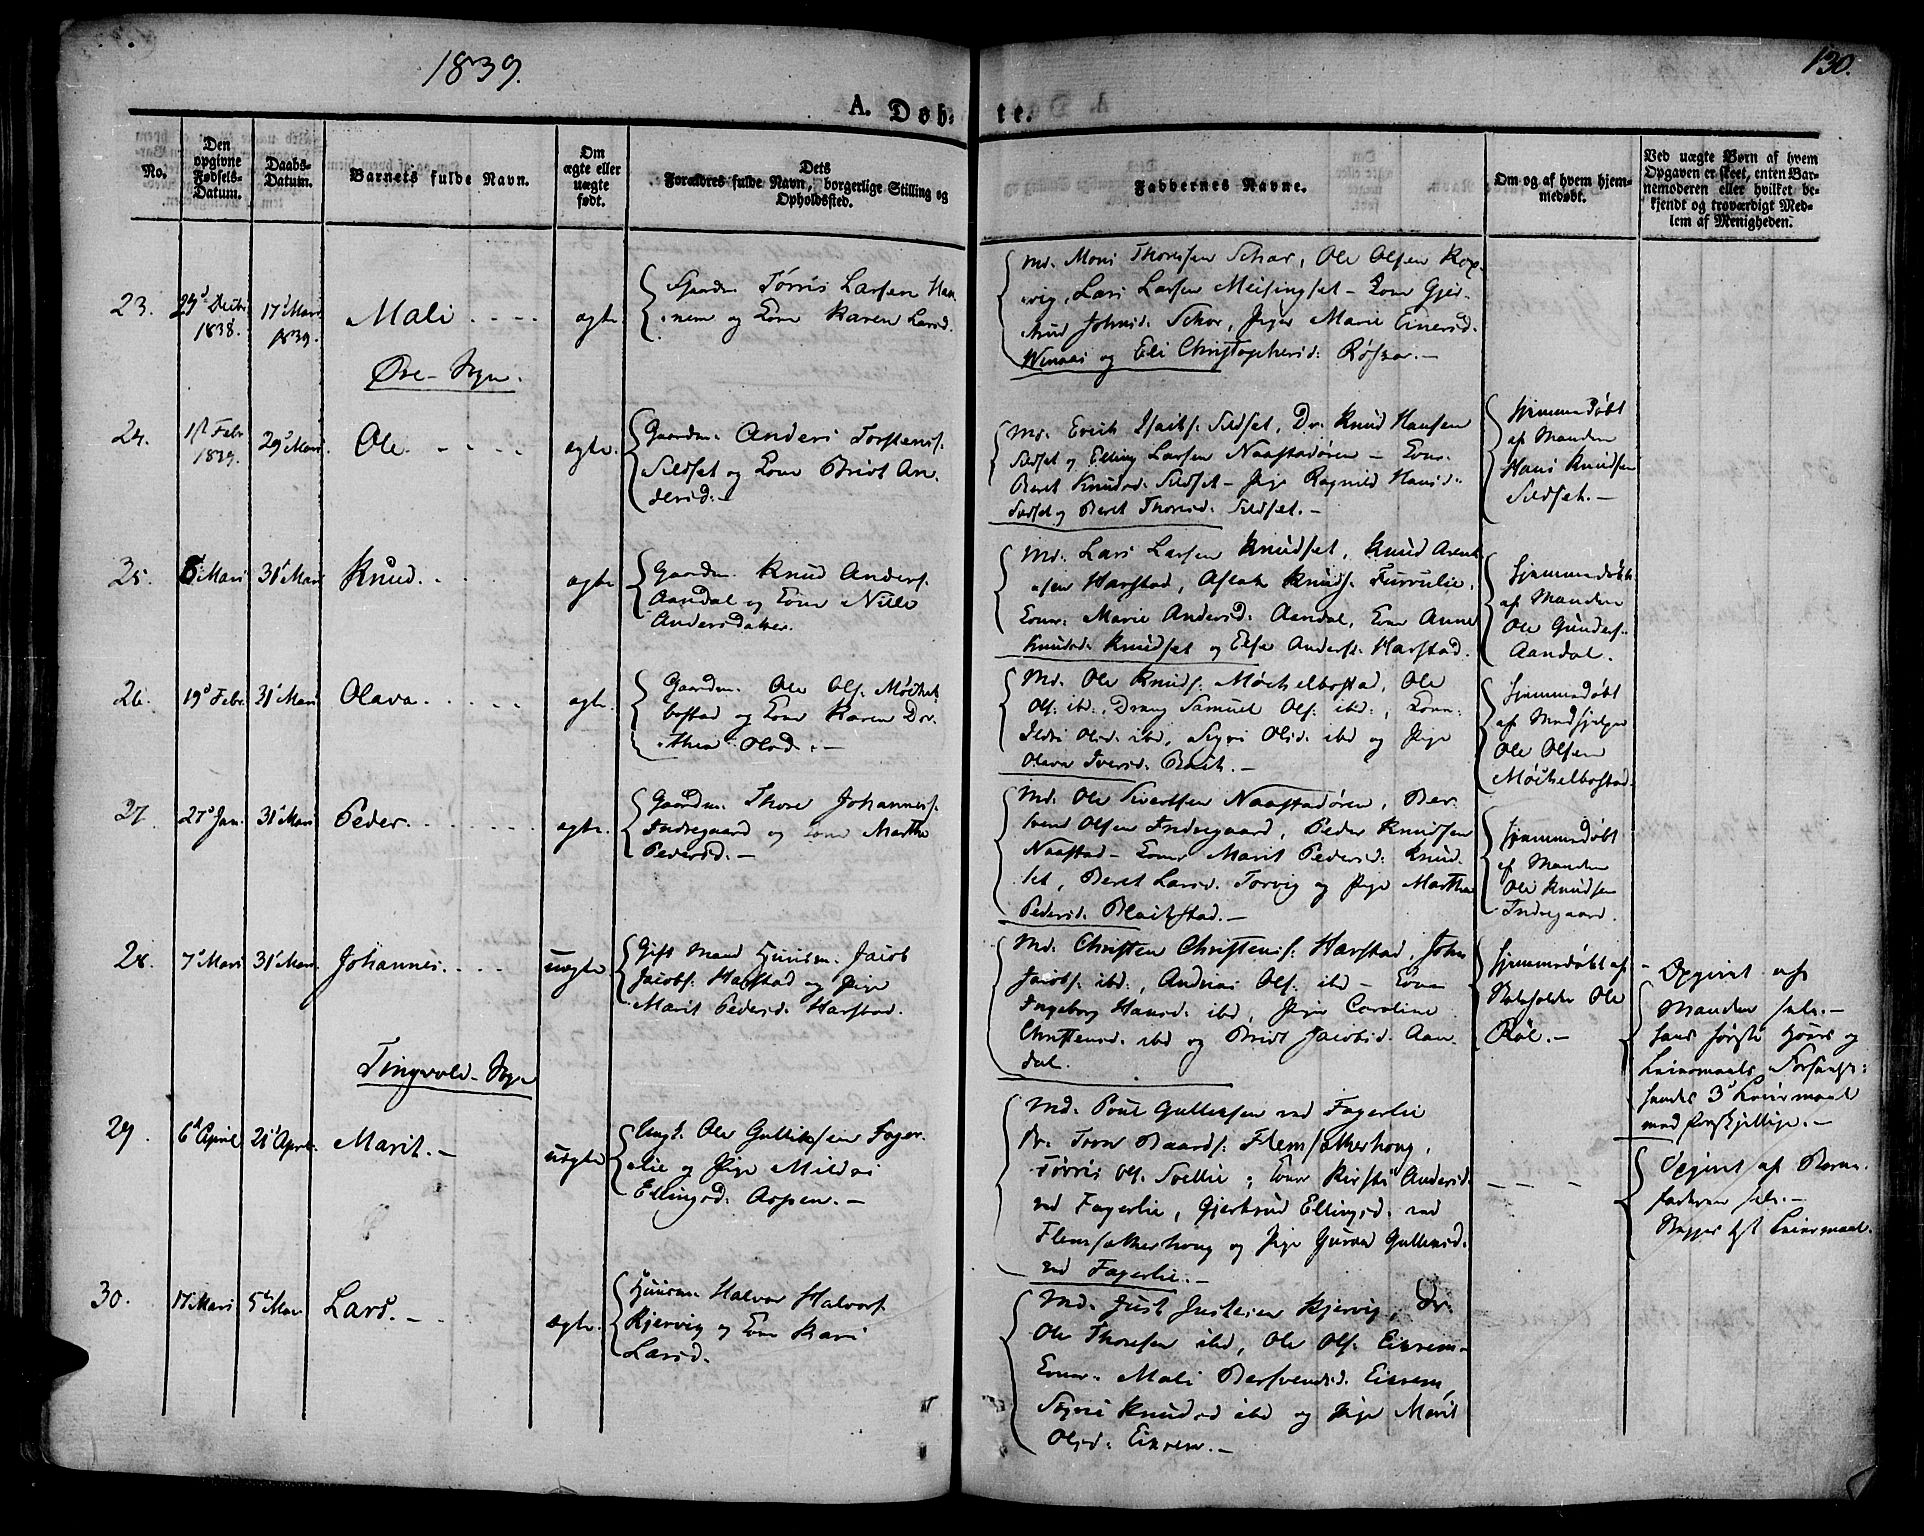 1839.
130.
A. Døb-
te.
No.
Den
opgivne
Fødsels-
Datum.
Daabs-
Datum.
Barnets fulde Navn.
Om
ægte eller
uægte
født.
Dets
Forældres fulde Navn, borgerlige Stilling og
Opholdssted.
Faddernes Navne.
Om og af hvem hjem-
medøbt.
Ved uægte Børn af hvem
Opgaven er skeet, enten Bar-
nemoderen eller hvilket be-
kjendt og troværdigt Med-
lem af Menigheden.
23.
Decbr
1838.
17 Mars
1839.
Mali
ægte
Gaardm. Tørris Larsen
og Kone Karen Larsd.
Md. Mons Thoresen Schar, Ole Olsen
Lars Larsen Meisingset - Kone Gjer-
trud Johnsd. Schar, Pige Marie Einersd.
og Eli Christophersd. Røsvar. -
Øre - Sogn.
24.
1st Febr
1839.
29 Mars
Ole.
ægte.
Gaardm. Anders Torstens.
Sildset og Kone Bridt An-
dersd. -
Md. Erich Isachs. Sildset, Dr. Knud Hansen
Sildset og Elling Larsen Naastadøren - Koner.
Beret Knudsd. Sildset - Pige Ragnild Hansd.
Sildset og Beret Thoresd. Sildset. -
hjemmedøbt
af Manden
Hans Knudsen
Sildset. -
25.
8 Mars
31 Mars
Knud.
ægte
Gaardm. Knud Anders.
Aandal og Kone Nille
Andersdatter.
Md. Lars Larsen Knudset, Knud Arent
sen Harstad, Aslak Knuds. Furulie.
Koner. Marie Andersd. Aandal, Kone Anne
Knudsd. Knudset og Else Andersd. Harstad.
hjemmedøbt
af Manden
Ole Gunders.
Aandal.
26.
19 Febr.
31 Mars
Olava.
ægte.
Gaardm. Ole Ols. Møchel-
bostad og Kone Karen Dor-
thea Olsd. -
Md. Ole Knuds. Møchelbostad, Ole
Ols. ibd., Dreng Samuel Ols. ibd., Koner.
Ildri Olsd. ibd, Sigri Olsd. ibd og Pige
Olava Iversd. Bach. -
hjemmedøbt
af Medhjelper
Ole Olsen
Møchelbostad.
27.
27 Jan.
31 Mars
Peder.
ægte.
Gaardm. Thore Johannes.
Indregaard og Kone Martha
Pedersd. -
Md. Ole Sivertsen Naastadøren, Ber-
sven Olsen Indregaard, Peder Knudsen
Naastad - Koner Marit Pedersd. Knud-
set, Beret Larsd. Torvig og Pige Martha
Pedersd. Blaichstad. -
hjemmedøbt
af Manden
Ole Knudsen
Indregaard.
28.
7 Mars
31 Mars.
Johannes.
uægte
Gift Mand Huusm. Jacob
Jacobs. Harstad og Pige
Marit Pedersd. Harstad.
Md. Christen Christens. Harstad, John
Jacobs. ibd., Andreas Ols. ibd - Kone
Ingeborg Hansd. ibd, Pige Caroline
Christensd. ibd og Bridt Jacobsd. Aan-
dal.
hjemmedøbt af
Skoleholder Ole
Røe. -
Opgivet af
Manden selv. -
hans første Hoers og
Leiermaals Forseelse:
hendes 3d Leiermaal
med forskjellige. -
Tingvold - Sogn
29.
6 April
21 April.
Marit. -
uægte
Ungk. Ole Gulliksen Fager-
lie og Pige Mildri
Ellingsd. Aspen. -
Md. Poul Gulliksen ved Fagerlie
Dr. Tron Baards. Flemsætherhoug,
Tørris Ols. Soellie; Kone Kirsti Andersd.
ved Fagerlie, Gjertrud Ellingsd. ved
Flemsætherhoug og Pige Guroe Gulliksd.
ved Fagerlie. -
Opgivet af Barne-
faderen selv. -
Begges 1st Leiermaal.
30.
17 Mars
5 Mai
Lars. -
ægte.
Huusm. Halvor Halvors.
Kjervig og Kone Kari
Larsd.
Md. Just Justesen Kjervig, Dr.
Ole Thoresen ibd, Ole Ols. Eikrem -
Koner. Mali Bersvendsd. Eikrem,
Sigri Knudsd ibd og Pige Marit
Olsd. Eikrem. -